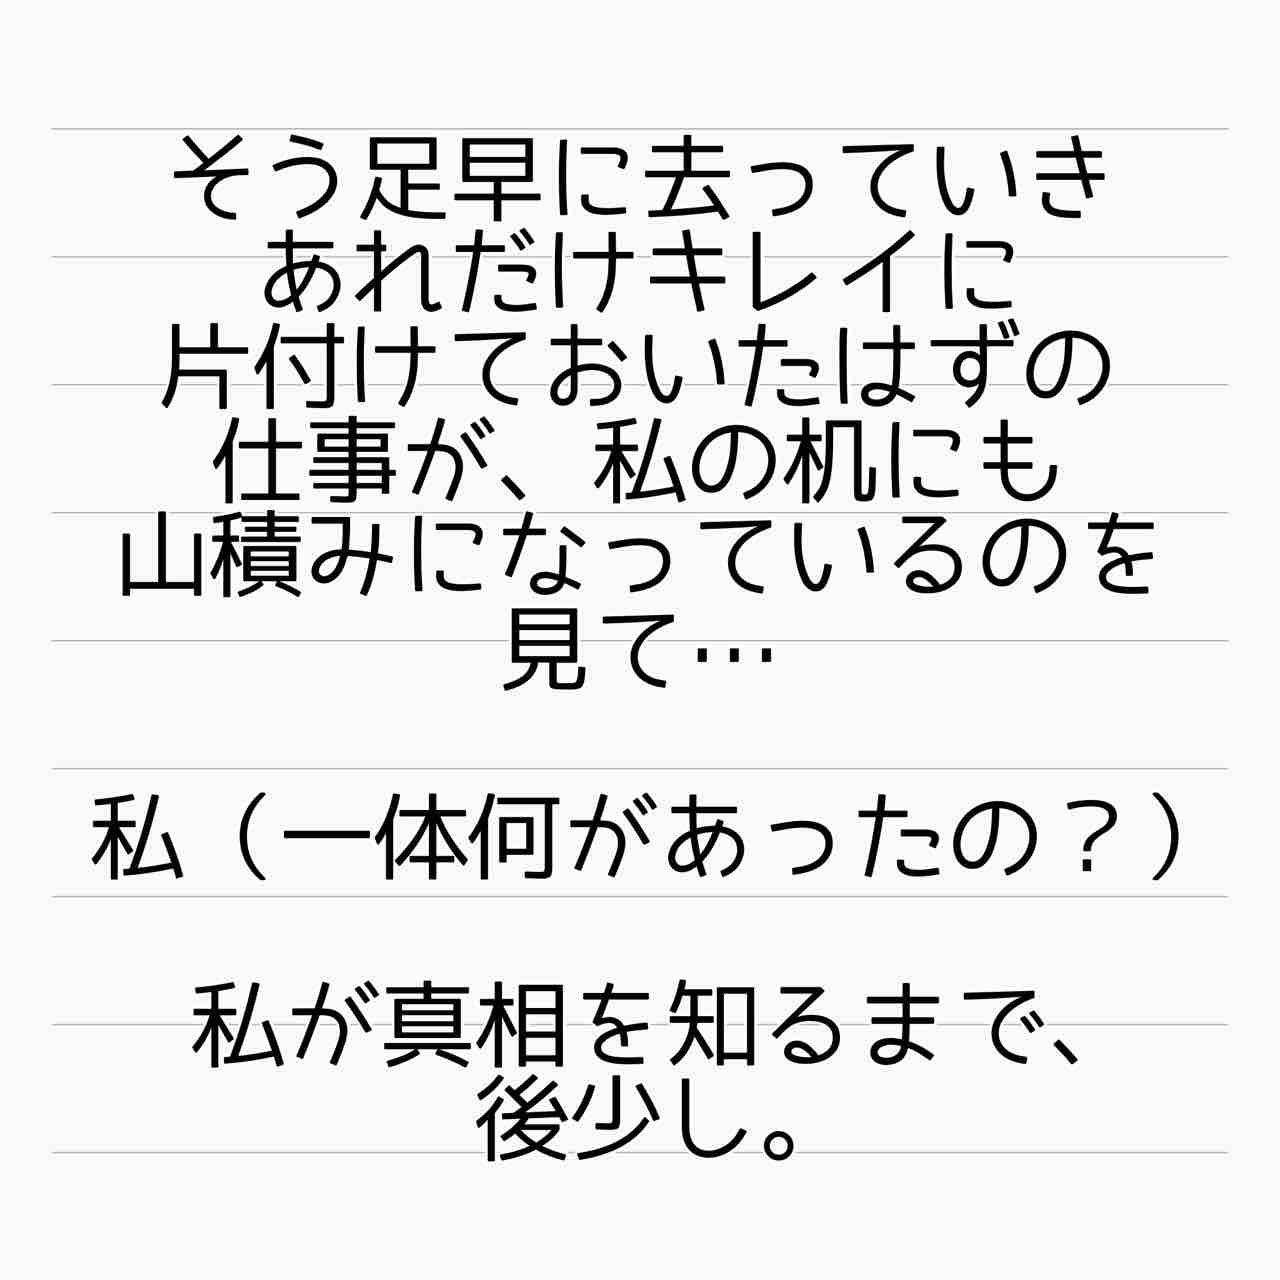 そう足早に去っていき
あれだけキレイに
片付けておいたはずの
仕事が、私の机にも
山積みになっているのを
見て…
私（一体何があったの？）
私が真相を知るまで、
後少し。